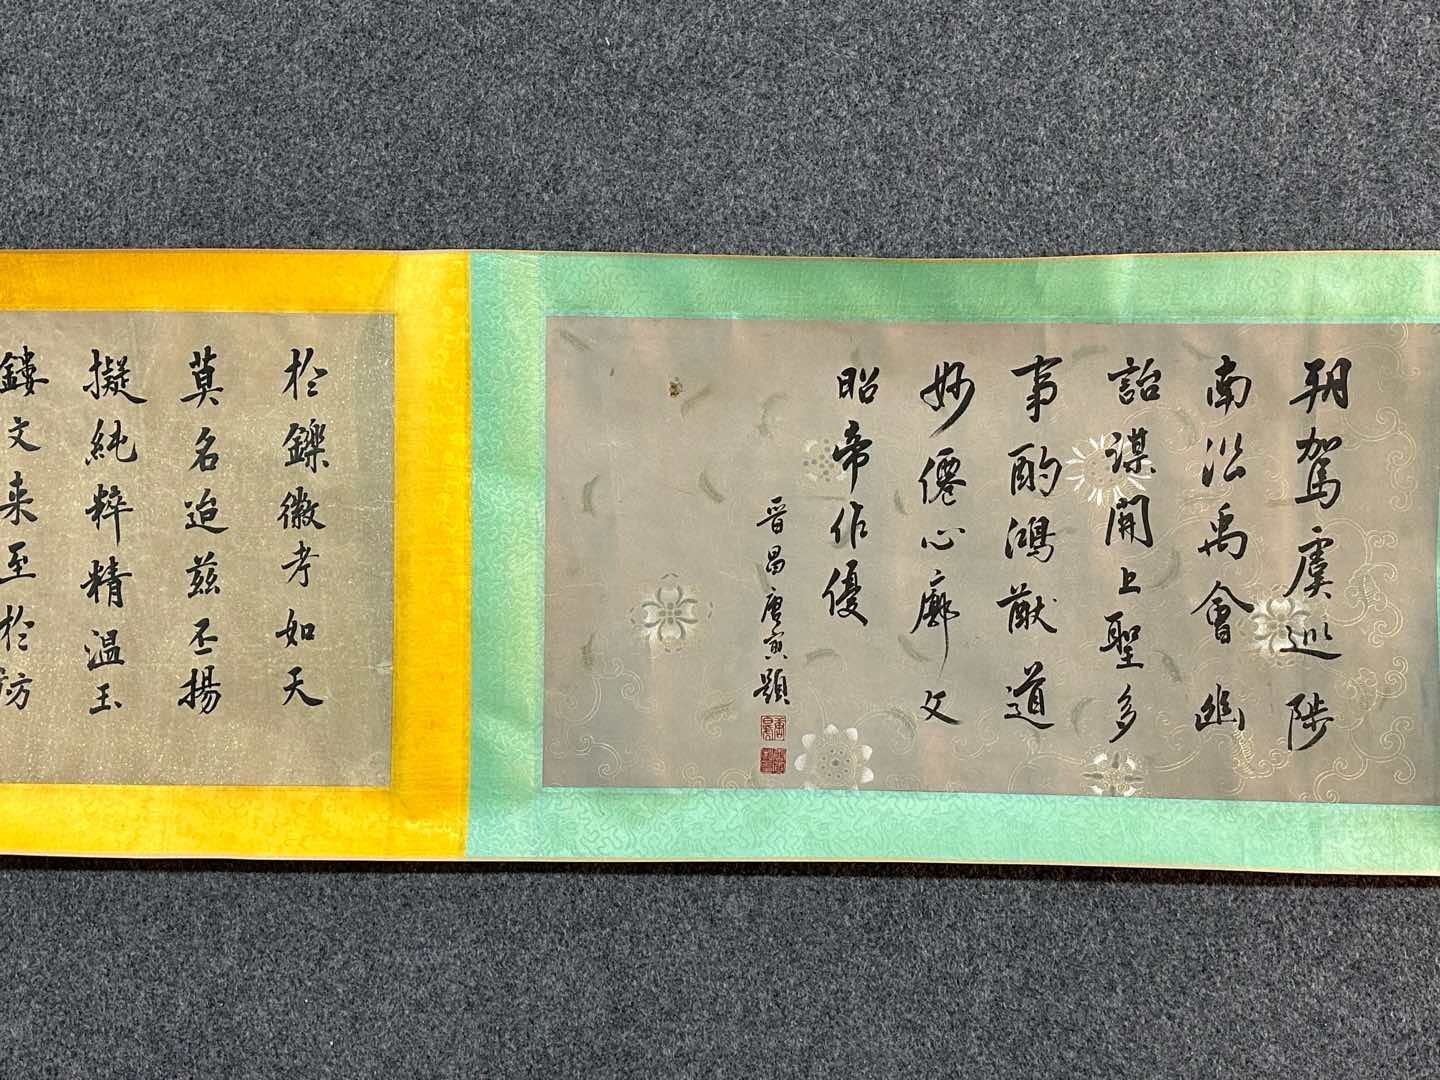 朔駕虞巡陟
南泒禹會幽
詒謀開上聖多
事酌鴻猷道
妙僊心廓文
昭帝作優
晉昌唐寅題
於鑠徽考如天
莫名迨茲丕揚
擬純粹精溫玉
鏤文来至於坊